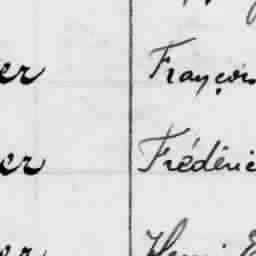 er François
er Frédéric
er Henri E